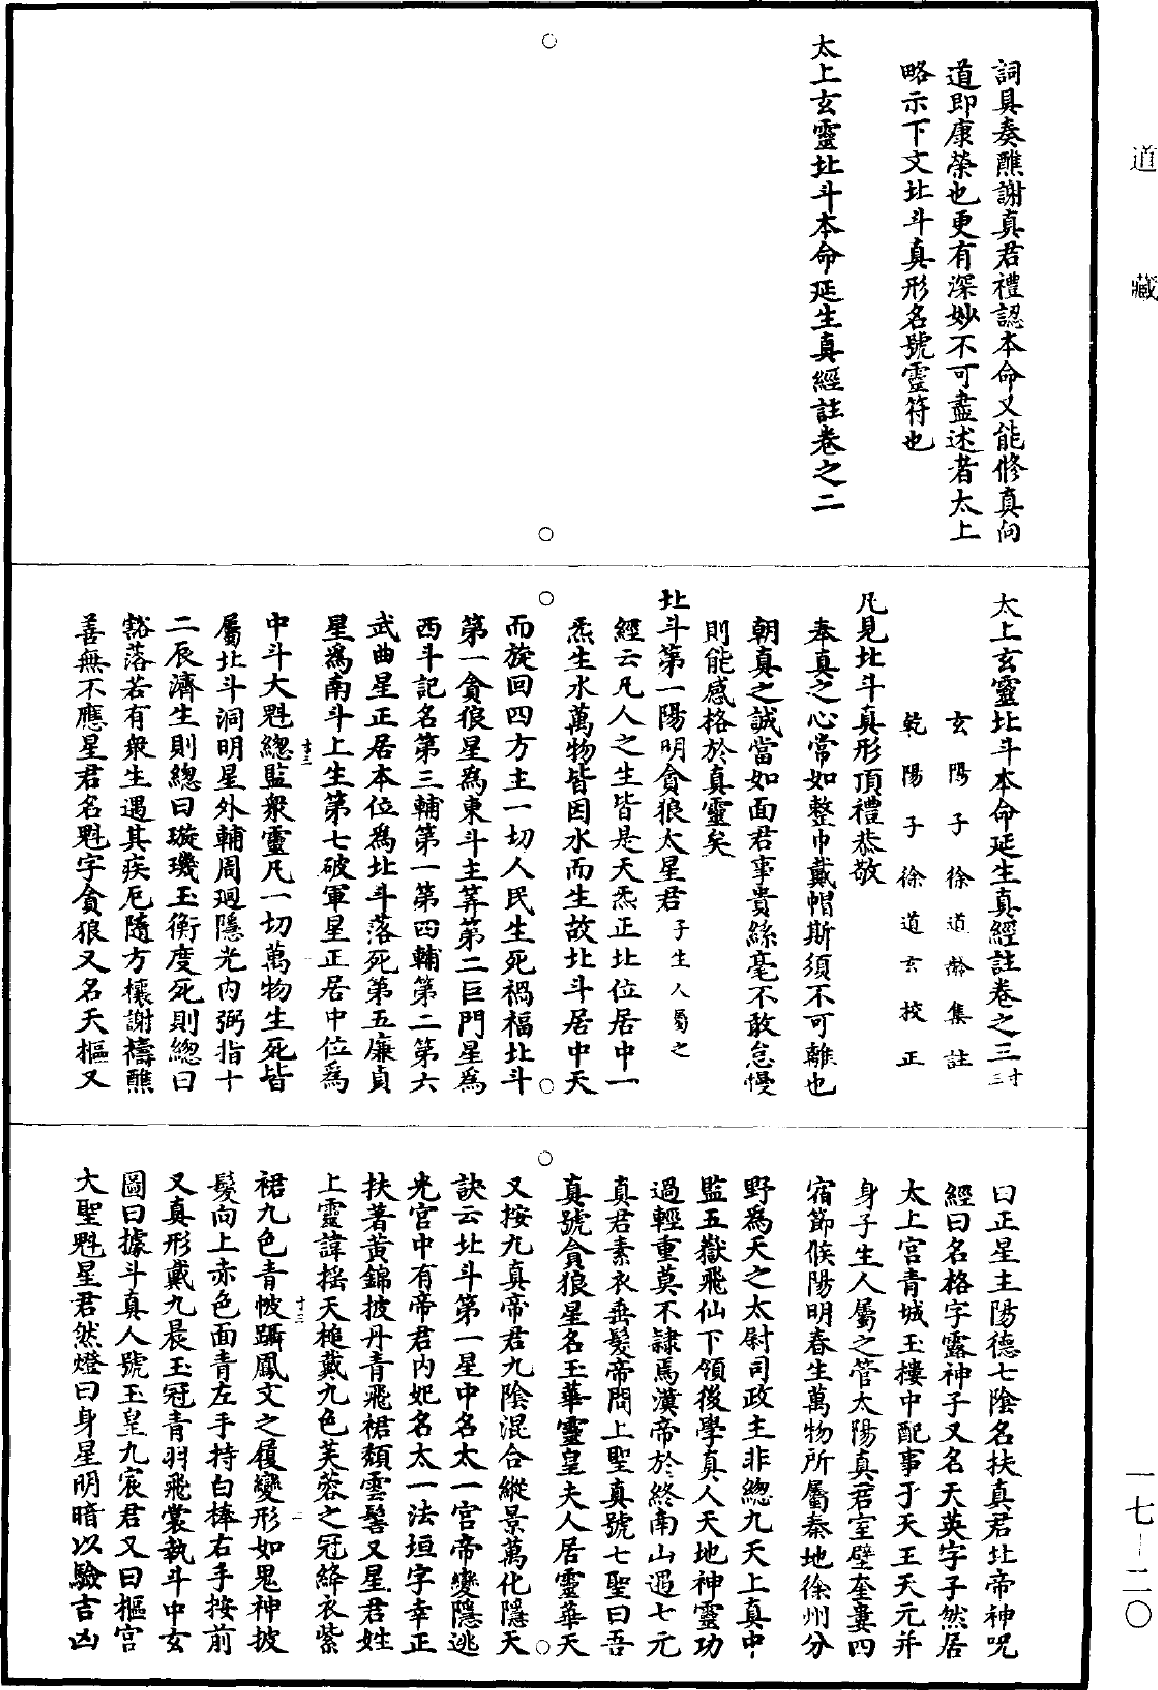 道藏
詞具奏醮謝真君禮認本命又能修真向
道即康榮也更有深妙不可盡述者太上
略示下文北斗真形名號靈符也
太上玄靈北斗本命延生真經註卷之二
太上玄靈北斗本命延生真經註卷之三 寸三
玄陽子徐道齡集註
乾陽子徐道玄校正
凡見北斗真形頂禮恭敬
奉真之心常如整巾戴帽斯須不可離也
朝真之誠當如面君事貴絲毫不敢怠慢
則能感格於真靈矣
北斗第一陽明貪狼太星君 子生人屬之
經云凡人之生皆是天炁正北位居中一
炁生水萬物皆因水而生故北斗居中天
而旋回四方主一切人民生死禍福北斗
第一貪狼星為東斗主筭第二巨門星為
西斗記名第三輔第一第四輔第二第六
武曲星正居本位為北斗落死第五廉貞
星為南斗上生第七破軍星正居中位為
中斗大魁總監衆靈凡一切萬物生死皆
十三
屬北斗洞明星外輔周迴隱光內弼指十
二辰濟生則總曰璇璣玉衡度死則總曰
豁落若有衆生遇其疾厄隨方禳謝禱醮
善無不應星君名魁字貪狼又名天樞又
曰正星主陽德七陰名扶真君北帝神呪
經曰名格字露神子又名天英字子然居
太上宮青城玉樓中配事于天王天元并
身子生人屬之管太陽真君室壁奎婁四
宿節候陽明春生萬物所屬秦地徐州分
野為天之太尉司政主非總九天上真中
監五嶽飛仙下領後學真人天地神靈功
過輕重莫不隸焉漢帝於終南山遇七元
真君素衣垂髮帝問上聖真號七聖曰吾
真號貪狼星名玉華靈皇夫人居靈華天
又按九真帝君九陰混合縱景萬化隱天
訣云北斗第一星中名太一宮帝變隱逃
光宮中有帝君內妃名太一法垣字幸正
扶著黃錦披丹青飛裙頹雲髻又星君姓
上靈諱搖天槌戴九色芙蓉之冠絳衣紫
裙九色青帔躡鳳文之履變形如鬼神披
十三
髮向上赤色面青左手持白棒右手按前
又真形戴九晨玉冠青羽飛裳執斗中玄
圖曰據斗真人號玉皇九宸君又曰樞宮
大聖魁星君然燈曰身星明暗以驗吉凶
一七—二〇